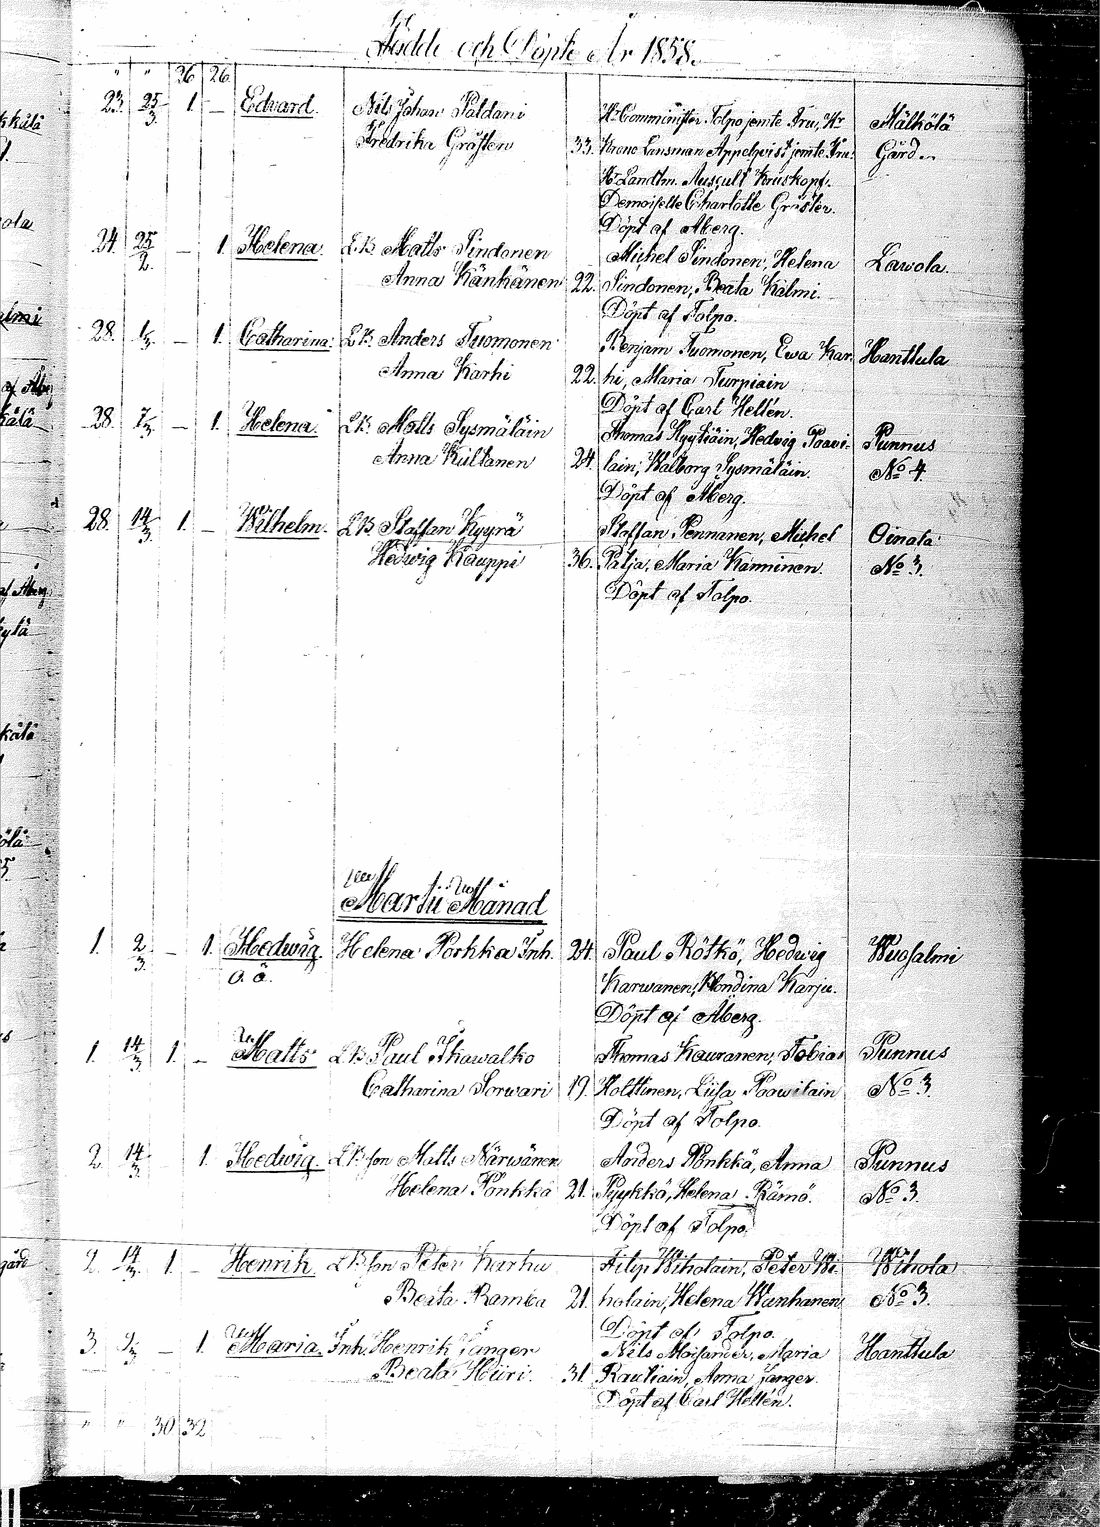 Födde och Döpte År 1858.
" " 26 26
23. 25/3. 1. – Edvard. Nils Johan Paldani Hr Comminister Tolpo jemte Fru, Hr Mälkölä
Fredrika Gråsten 33. Krono Länsman Appelqvist jemte Fru: Gård.
Hr Landtm. Auscult Kruskopf.
Demoiselle Charlotte Gråsten.
Döpt af Åberg.
24. 25/2. – 1. Helena. L.B. Matts Sindonen Michel Sindonen, Helena Lawola.
Anna Känkänen 22. Sindonen, Beata Kälmi.
Döpt af Tolpo.
28. 1/3. – 1. Catharina. L.B. Anders Tuomonen Benjam Tuomonen, Ewa Kar- Hanttula
Anna Karhi 22. hi, Maria Turpiain
Döpt af Carl Hellén.
28. 7/3 – 1. Helena. L.B. Matts Sysmäläin Thomas Kyytiäin, Hedvig Paawi- Punnus
Anna Kultanen 24. lain, Walborg Sysmäläin. No 4
Döpt af Åberg.
28. 14/3. 1. – Wilhelm. L.B. Staffan Kyyrä Staffan Pennanen, Michel Oinala
Hedwig Kauppi 36. Patja, Maria Kanninen. No 3.
Döpt af Tolpo.
Martii Månad
1. 2/3. – 1. Hedwig. Helena Porkka Inh. 24. Paul Rötkö, Hedwig Wuosalmi
o.ä. Karwanen, Karju.
Döpt af Åberg.
1. 14/3 1. – Matts L.B. Paul Ihawalko Thomas Kauranen, Tobias Punnus
Catharina Sorwari 19. Holttinen, Liisa Paawilain No 3.
Döpt af Tolpo.
2. 14/3. 1. Hedwig. L.B. son Matts Närwänen Anders Pönkkä, Anna Punnus
Helena Pönkkä 21. Pyykkö, Helena Rämö. No 3.
Döpt af Tolpo.
2. 14/3. 1. – Henrik. L.B. son Peter Karhu Filip Wiholain, Peter Wi- Wihola
Beata Ramba 21. holain, Helena Wanhanen No 3.
Döpt af Tolpo.
3. 9/3 – 1. Maria. Inh. Henrik Jänger Nils Moisander, Maria Hanttula
Beata Hiiri. 31. Rautiain, Anna Jänger.
Döpt af Carl Hellén.
" " 30 32